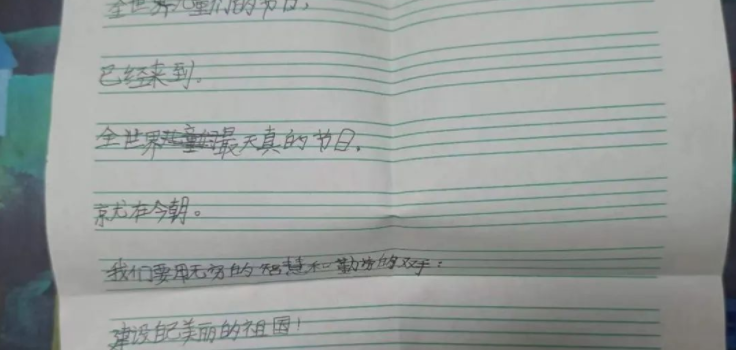 全世界儿童们的节日,
已经来到。
全世界最天真的节日.
就在今朝。
我们要用无穷的智慧和勤劳的双手:
建设自己美丽的祖国!